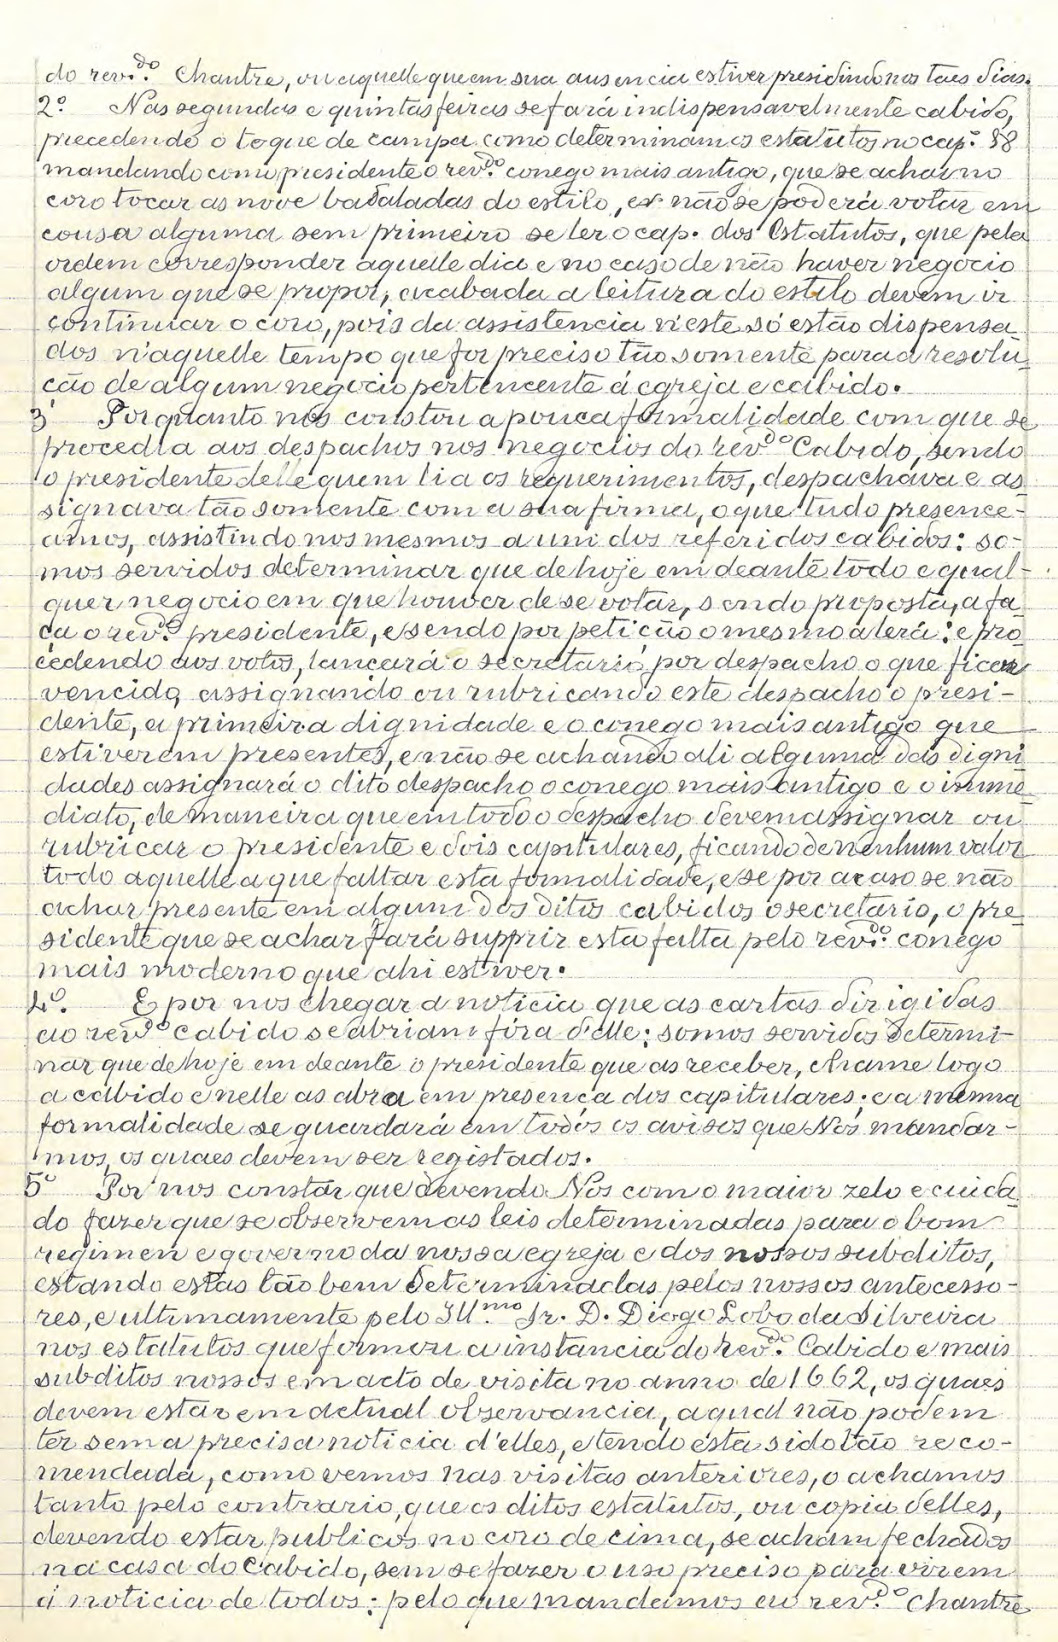 do rev.do Chantre, ou aquelle que em sua ausencia estiver presidindo nos taes dias.
2.º Nas segundas e quintas feiras se fará indispensavelmente cabido,
precedendo o toque de campa como determinam os estatutos no cap.º 88
mandando como presidente o rev.do conego mais antigo, que se achar no
coro tocar as nove badaladas do estilo, e não se poderá votar em
cousa alguma sem primeiro se ler o cap. dos Estatutos, que pela
ordem corresponder aquelle dia e no caso de não haver negocio
algum que se propor, acabada a leitura do estilo devem ir
continuar o coro, pois da assistencia n'este só estão dispensa
dos n'aquelle tempo que for preciso tão somente para a resolu_
ção de algum negocio pertencente á egreja e cabido.
3º Porquanto nos constou a pouca formalidade com que se
procedia aos despachos nos negocios do rev.do Cabido, sendo
o presidente delle quem lia os requerimentos, despachava e as_
signava tão somente com a sua firma, o que tudo presence-
amos, assistindo nos mesmos a um dos referidos cabidos: so-
mos servidos determinar que de hoje em deante todo e qual-
quer negocio em que houver de se votar, sendo proposta, a fa_
ça o rev.do presidente, e sendo por petição o mesmo a lerá: e pro_
cedendo aos votos, lançará o secretario por despacho o que ficar
vencido, assignando ou rubricando este despacho o presi-
dente, a primeira dignidade e o conego mais antigo que
estiverem presentes, e não se achando ali alguma das digni_
dades assignará o dito despacho o conego mais antigo e o imme_
diato, de maneira que em todo o despacho devem assignar ou
rubricar o presidente e dois capitulares, ficando de nenhum valor
todo aquelle a que faltar esta formalidade, e se por acaso se não
achar presente em algum dos ditos cabidos o secretario, o pre_
sidente que se achar fará supprir esta falta pelo rev.do conego
mais moderno que ahi estiver.
4º. E por nos chegar a noticia que as cartas dirigidas
ao rev.do cabido se abriam fóra d'elle: somos servidos determi-
nar que de hoje em deante o presidente que as receber, chame logo
a cabido e nelle as abra em presença dos capitulares; e a mesma
formalidade se guardará em todos os avisos que Nós mandar-
mos, os quaes devem ser registados.
5º Por nos constar que devendo Nos com o maior zelo e cuida_
do fazer que se observem as leis determinadas para o bom
regimen e governo da nossa egreja e dos nossos subditos,
estando estas tão bem determinadas pelos nossos antecesso-
res, e ultimamente pelo Ill.mo Sr. D. Diogo Lobo da Silveira
nos estatutos que formou a instancia do rev.do Cabido e mais
subditos nossos em acto de visita no anno de 1662, os quaes
devem estar em actual observancia, a qual não podem
ter sem a precisa noticia d'elles, e tendo esta sido tão reco-
mendada, como vemos nas visitas anteriores, o achamos
tanto pelo contrario, que os ditos estatutos, ou copia delles,
devendo estar publicos no coro de cima, se acham fechados
na casa do Cabido, sem se fazer o uso preciso para virem
á noticia de todos: pelo que mandamos ao rev.do Chantre